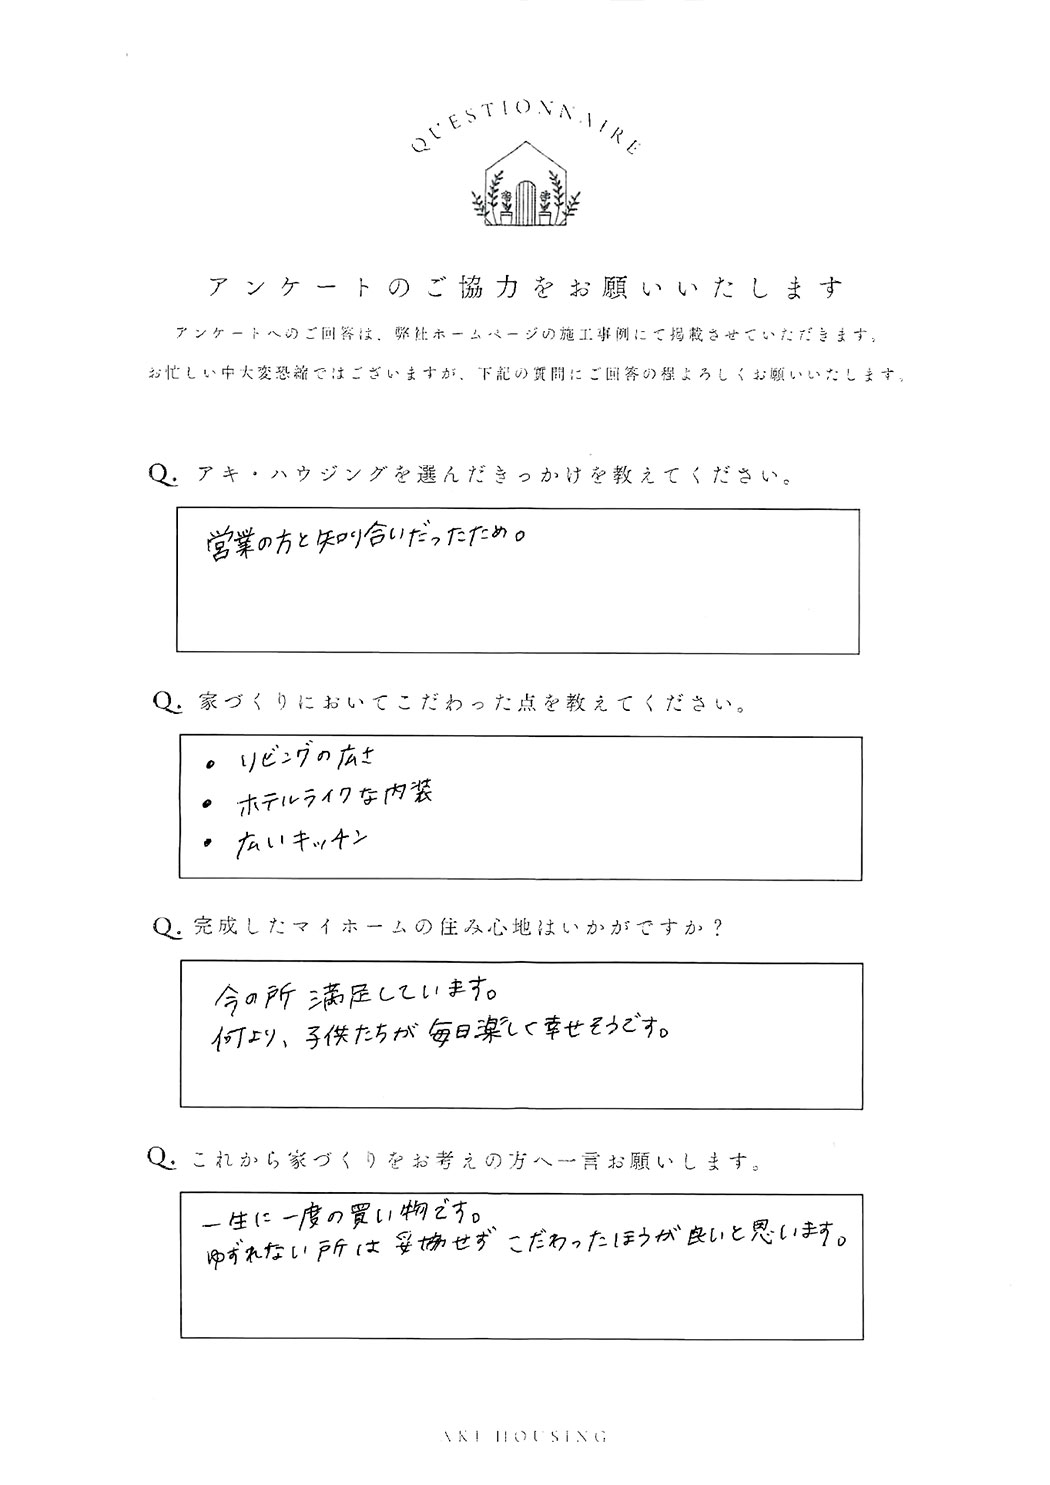 QUESTIONNAIRE
アンケートのご協力をお願いいたします
アンケートへのご回答は、弊社ホームページの施工事例にて掲載させていただきます。
お忙しい中大変恐縮ではございますが、下記の質問にご回答の程よろしくお願いいたします。
Q. アキ・ハウジングを選んだきっかけを教えてください。
営業の方と知り合いだったため。
Q. 家づくりにおいてこだわった点を教えてください。
• リビングの広さ
• ホテルライクな内装
• 広いキッチン
Q. 完成したマイホームの住み心地はいかがですか？
今の所 満足しています。
何より、子供たちが毎日楽しく幸せそうです。
Q. これから家づくりをお考えの方へ一言お願いします。
一生に一度の買い物です。
ゆずれない所は妥協せず こだわったほうが良いと思います。
AKI HOUSING